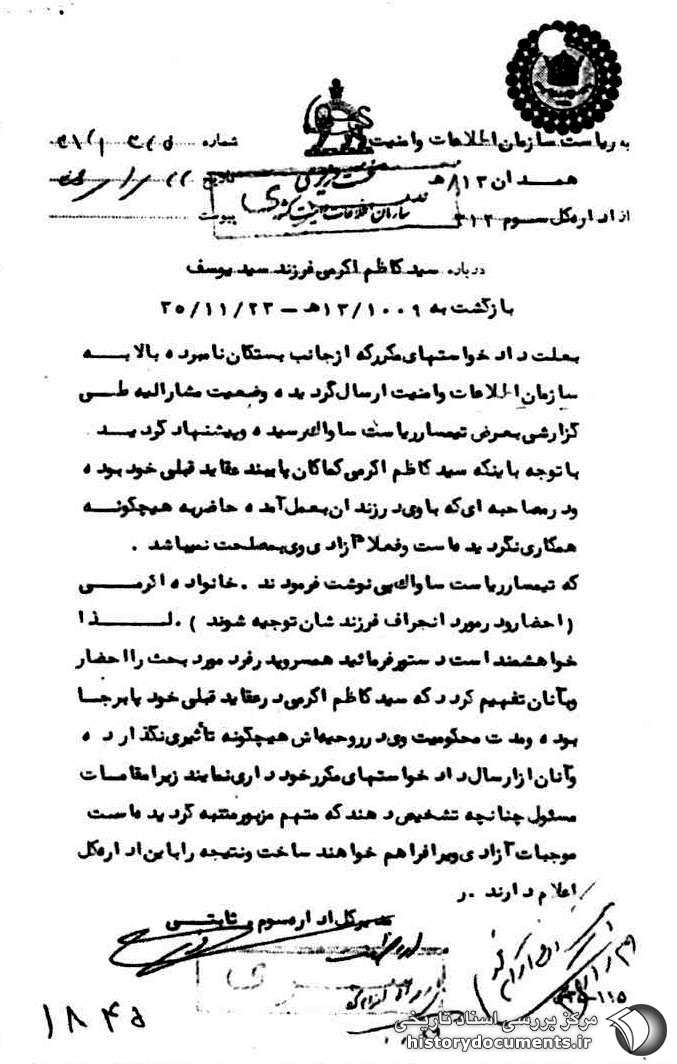 به ریاست سازمان اطلاعات و امنیت
شماره
همدان ۸۱۲هـ
تاریخ
از اداره‌کل سوم ۳۱۲
پیوست
نخست وزیری
سازمان اطلاعات و امنیت کشور
سری
درباره سید کاظم اکرمی فرزند سید یوسف
بازگشت به ۱۲/۱۰۰۹هـ – ۳۵/۱۱/۲۳
بعلت دادخواستهای مکرر که از جانب بستگان نامبرده بالا به
سازمان اطلاعات و امنیت ارسال گردیده وضعیت مشارالیه طی
گزارشی بعرض تیمسار ریاست ساواک رسیده و پیشنهاد گردید
با توجه باینکه سید کاظم اکرمی کماکان پایبند عقاید قبلی خود بوده
و در مصاحبه ای که با وی در زندان بعمل آمده حاضر به هیچگونه
همکاری نگردیده است و فعلا آزادی وی بمصلحت نمیباشد .
که تیمسار ریاست ساواک پی نوشت فرمودند . خانواده اکرمی
(احضار و در مورد انحراف فرزندشان توجیه شوند ) . لذا
خواهشمند است دستور فرمائید همسر و پدر فرد مورد بحث را احضار
و بآنان تفهیم گردد که سید کاظم اکرمی در عقاید قبلی خود پابرجا
بوده و مدت محکومیت وی در روحیه‌اش هیچگونه تأثیری نگذارده
و آنان از ارسال دادخواستهای مکرر خودداری نمایند زیرا مقامات
مسئول چنانچه تشخیص دهند که متهم مزبور متنبه گردیده است
موجبات آزادی ویرا فراهم خواهند ساخت و نتیجه را باین اداره‌کل
اعلام دارند . ر
مدیرکل اداره سوم . ثابتی
سری
۱۸۴۵
مرکز بررسی اسناد تاریخی
historydocuments.ir